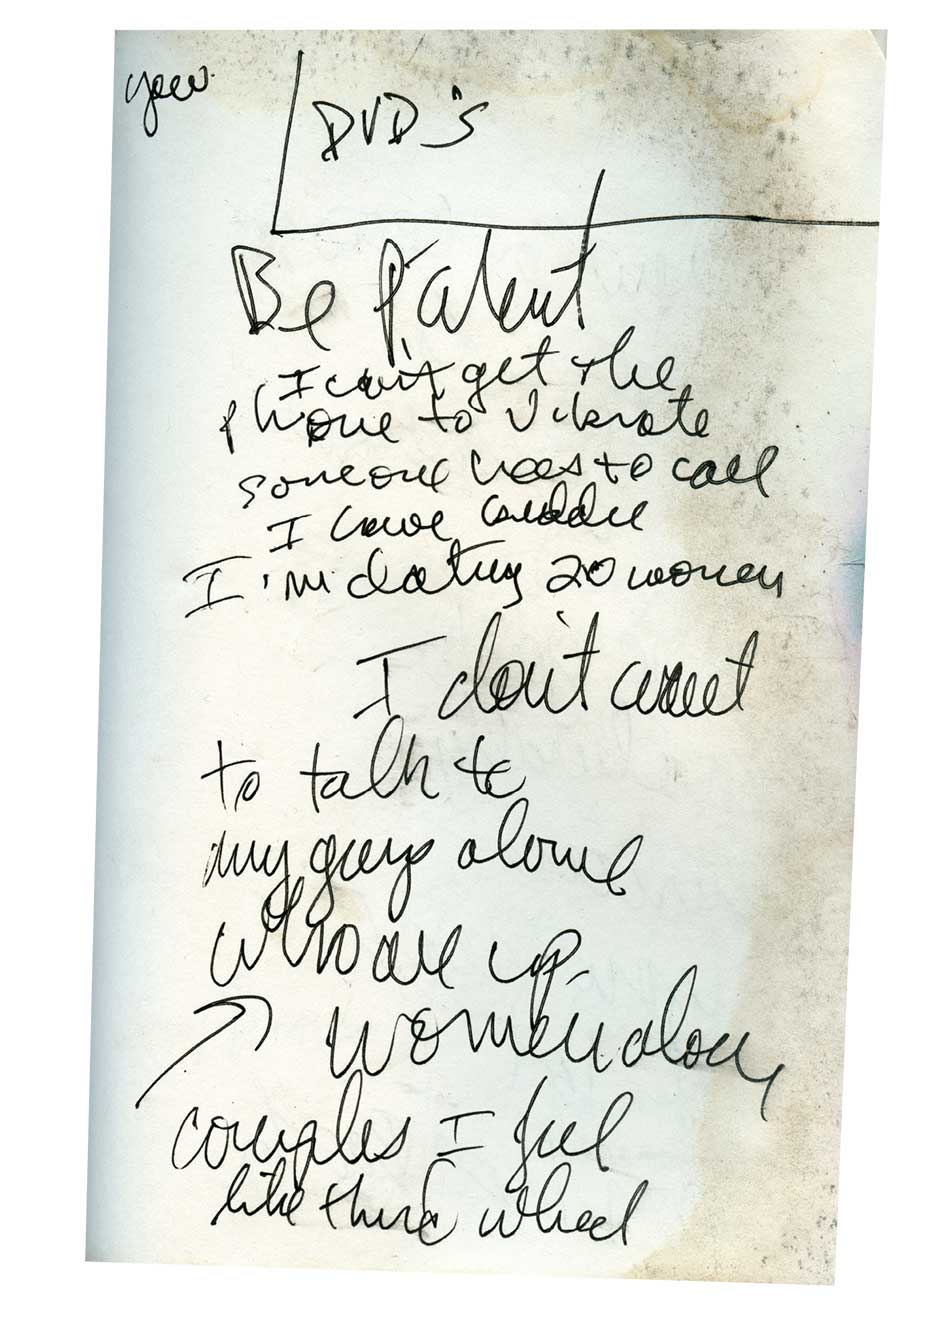 DVD's
Be Patent
I can't get the
phone to vibrate
someone has to call
I have
I'm dating 20 women
I don't want
to talk to
my guys alone
who are up
women alone
couples I feel
like third wheel